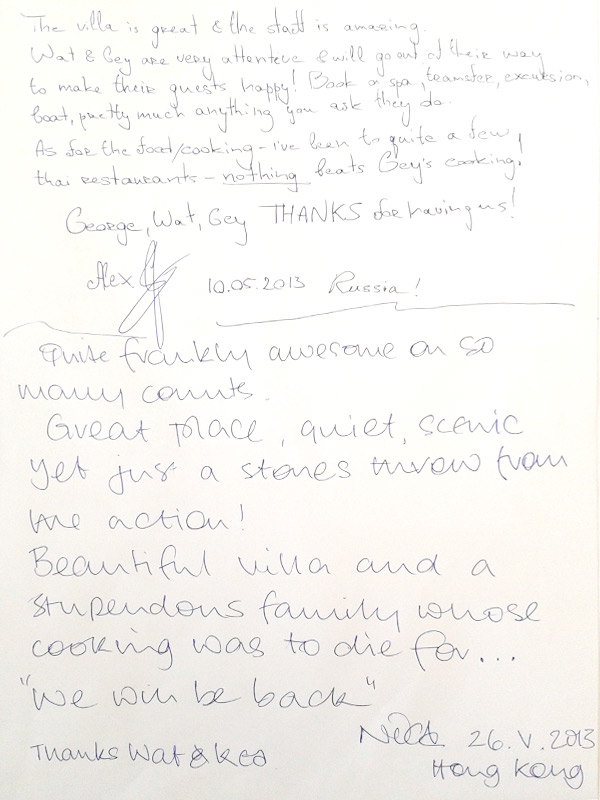 The villa is great & the staff is amazing.
Wat & Gey are very attenteve & will go out of their way
to make their guests happy! Book a spa, teansfer, excursion,
boat, pretty much anything you ask they do.
As for the food/cooking - i've been to quite a few
thai restaurants - nothing beats Gey's cooking!
George, Wat, Gey THANKS for having us!
Alex. 10.05.2013 Russia!
Quite frankly awesome on so
many counts.
Great place, quiet, scenic
yet just a stones throw from
the action!
Beautiful villa and a
stupendous family whose
cooking was to die for...
"We will be back"
26.V.2013
Thanks Wat &
Hong Kong